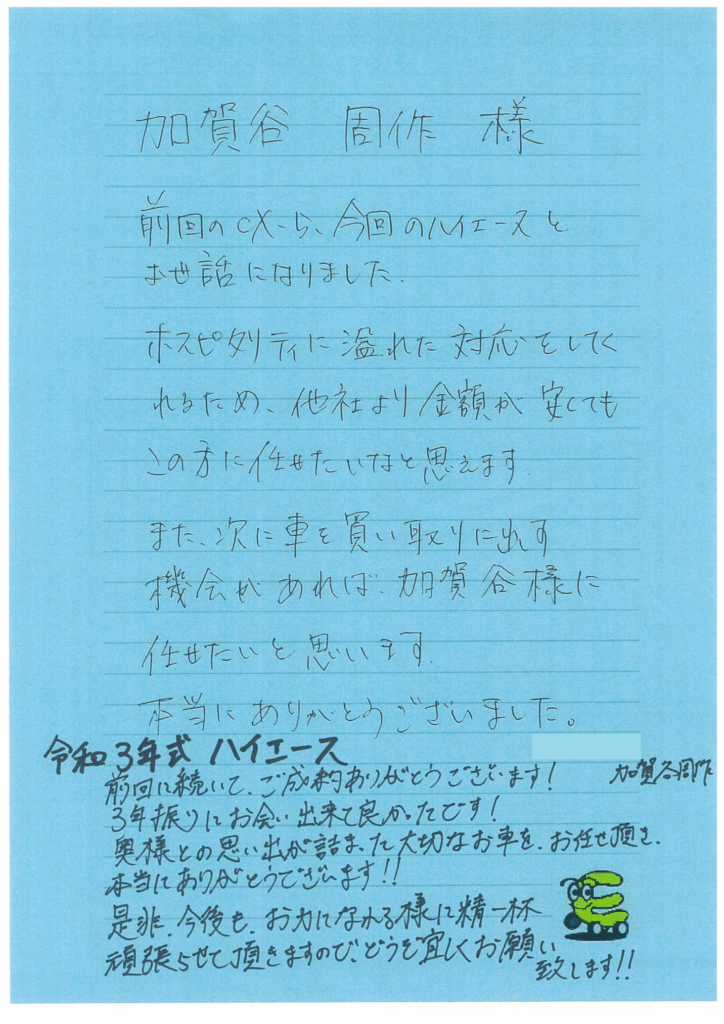 加賀谷 周作 様
前回のCX-5、今回のハイエースと
お世話になりました.
ホスピタリティに溢れた対応をしてく
れるため、他社より金額が安くても
この方に任せたいなと思えます.
また、次に車を買い取りに出す
機会があれば、加賀谷様に
任せたいと思います.
本当にありがとうございました。
令和3年式 ハイエース
前回に続いて、ご成約ありがとうございます!
加賀谷周作
3年振りにお会い出来て良かったです!
奥様との思い出が詰まった大切なお車を、お任せ頂き、
本当にありがとうございます!!
是非、今後も、お力になれる様に精一杯
頑張らせて頂きますので、どうぞ宜しくお願い
致します!!